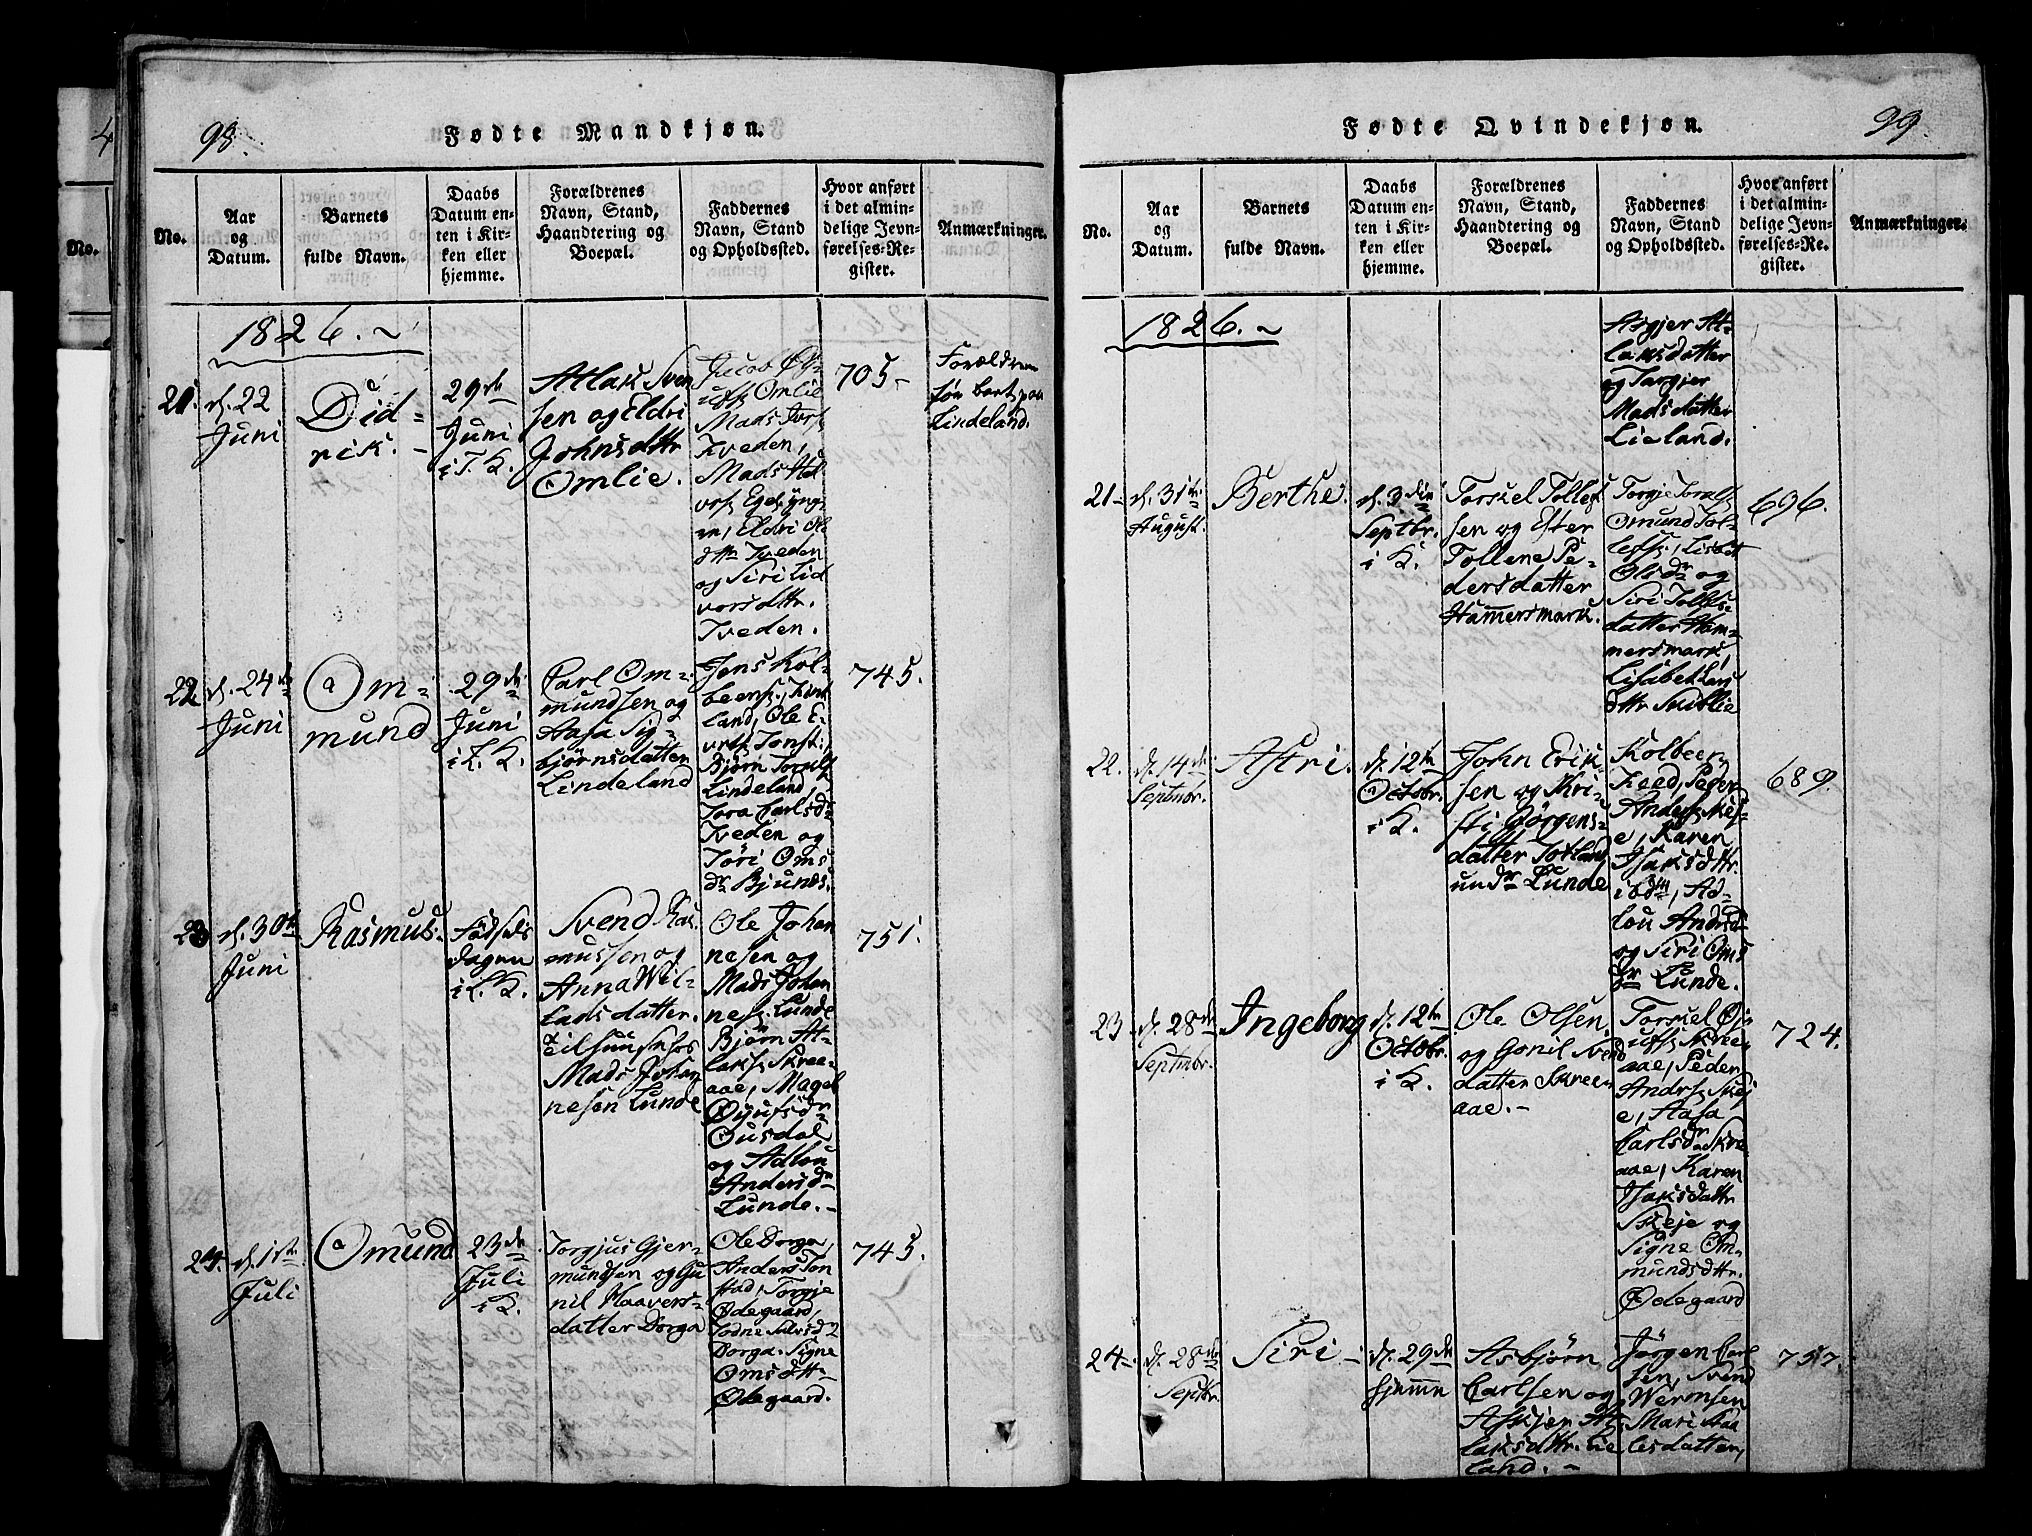 98.
Fødte Mandkjøn.
No.
Aar
og
Datum.
Barnets
fulde Navn.
Daabs
Datum en-
ten i Kir-
ken eller
hjemme.
Forældrenes
Navn, Stand,
Haandtering og
Boepæl.
Faddernes
Navn, Stand
og Opholdssted.
Hvor anført
i det almin-
delige Jevn-
førelses-Re-
gister.
Anmærkninger.
1826.
21.
d. 22
Juni
Did-
rik.
29de
Juni
i T. K.
Atlak Sven
sen og Eldri
Johnsdttr
Omlie.
Omlie
Mads
Tveden,
Mads
Eldri Ols
Tveden
og Siri Lid
vorsdttr.
Tveden.
705-
Forældrene
bort paa
Lindeland.
22
d. 24de
Juni
Om-
mund
29de
Juni
i L. K.
Carl Om-
mundsen og
Aasa Sig-
bjørnsdatter
Lindeland
Jens Kol-
beens.
land, Ole E-
Bjørn
Lindeland,
Tora Carlsdr
Tveden og
Töri Oms
dr
745.
23
d. 30te
Juni
Rasmus.
Födsels
dagen
i L. K.
Svend Ras-
mussen og
Anna Wil-
ladsdatter.
Mads Johan
nesen Lunde
Ole Johan
nesen og
Mads Johan
nes. Lunde
Bjørn At-
laks. Skree-
aae, Magel
Ousdal
og Adlou
Andersdr
Lunde.
751.
24.
d. 1ste
Juli
Omund
23de
Juli
i K.
Torgjus Gjer-
mundsen og Gu
nil Haavers-
datter Dorga
Ole Dorga,
Anders Ton
stad, Torgje
Ödegaard,
Todne
Dorga. Signe
Omsdttr
Ödegaard.
745.
Fødte Qvindekjøn.
99.
No.
Aar
og
Datum.
Barnets
fulde Navn.
Daabs
Datum en-
ten i Kir-
ken eller
hjemme.
Forældrenes
Navn, Stand,
Haandtering og
Boepæl.
Faddernes
Navn, Stand
og Opholdssted.
Hvor anført
i det almin-
delige Jevn-
førelses-Re-
gister.
Anmærkninger.
1826.
Asgjer At-
laksdatter
og Targjer
Madsdatter
Lieland.
21-
d. 31te
August.
Berthe.
d. 3die
Septbr.
i K.
Torkel Tollef
sen og Ester
Tollene Pe-
dersdatter
Hamersmark.
Torgje
Omund Tol-
lefs,
Olsdr og
Siri
datter Ham-
mersmark,
696.
22.
d. 14de
Septmbr.
Astri.
d. 12te
Octobr.
i K.
John Erik-
sen og Kri-
sti Jörgens-
datter Totland
undr Lunde
Kolbeen
Peder
Anders.
Karen
Isaksdttr.
ibdm, Ad-
lou Andersdr
og Siri Oms
dr Lunde.
689.
23.
d. 28de
Septmbr.
Ingeborg
d. 12te
Octobr.
i K.
Ole Olsen
og Gonil Svend
datter Skree-
aae.-
Torkel
Skree-
aae, Peder
Anders. Skej
e, Aasa
Carlsdr Skree
aae, Karen
Isaksdattr
Skeje og
Signe Om-
mundsdttr.
Ödegaard
724.
24-
d. 28de
Septbr.
Siri
d. 29de
hjemme
Asbjørn
Carlsen og
Asgjer At-
laksdttr. Lie
land.-
Jörgen Carl
sen, Svend
Wermsen
Mari
lesdatter,
757.